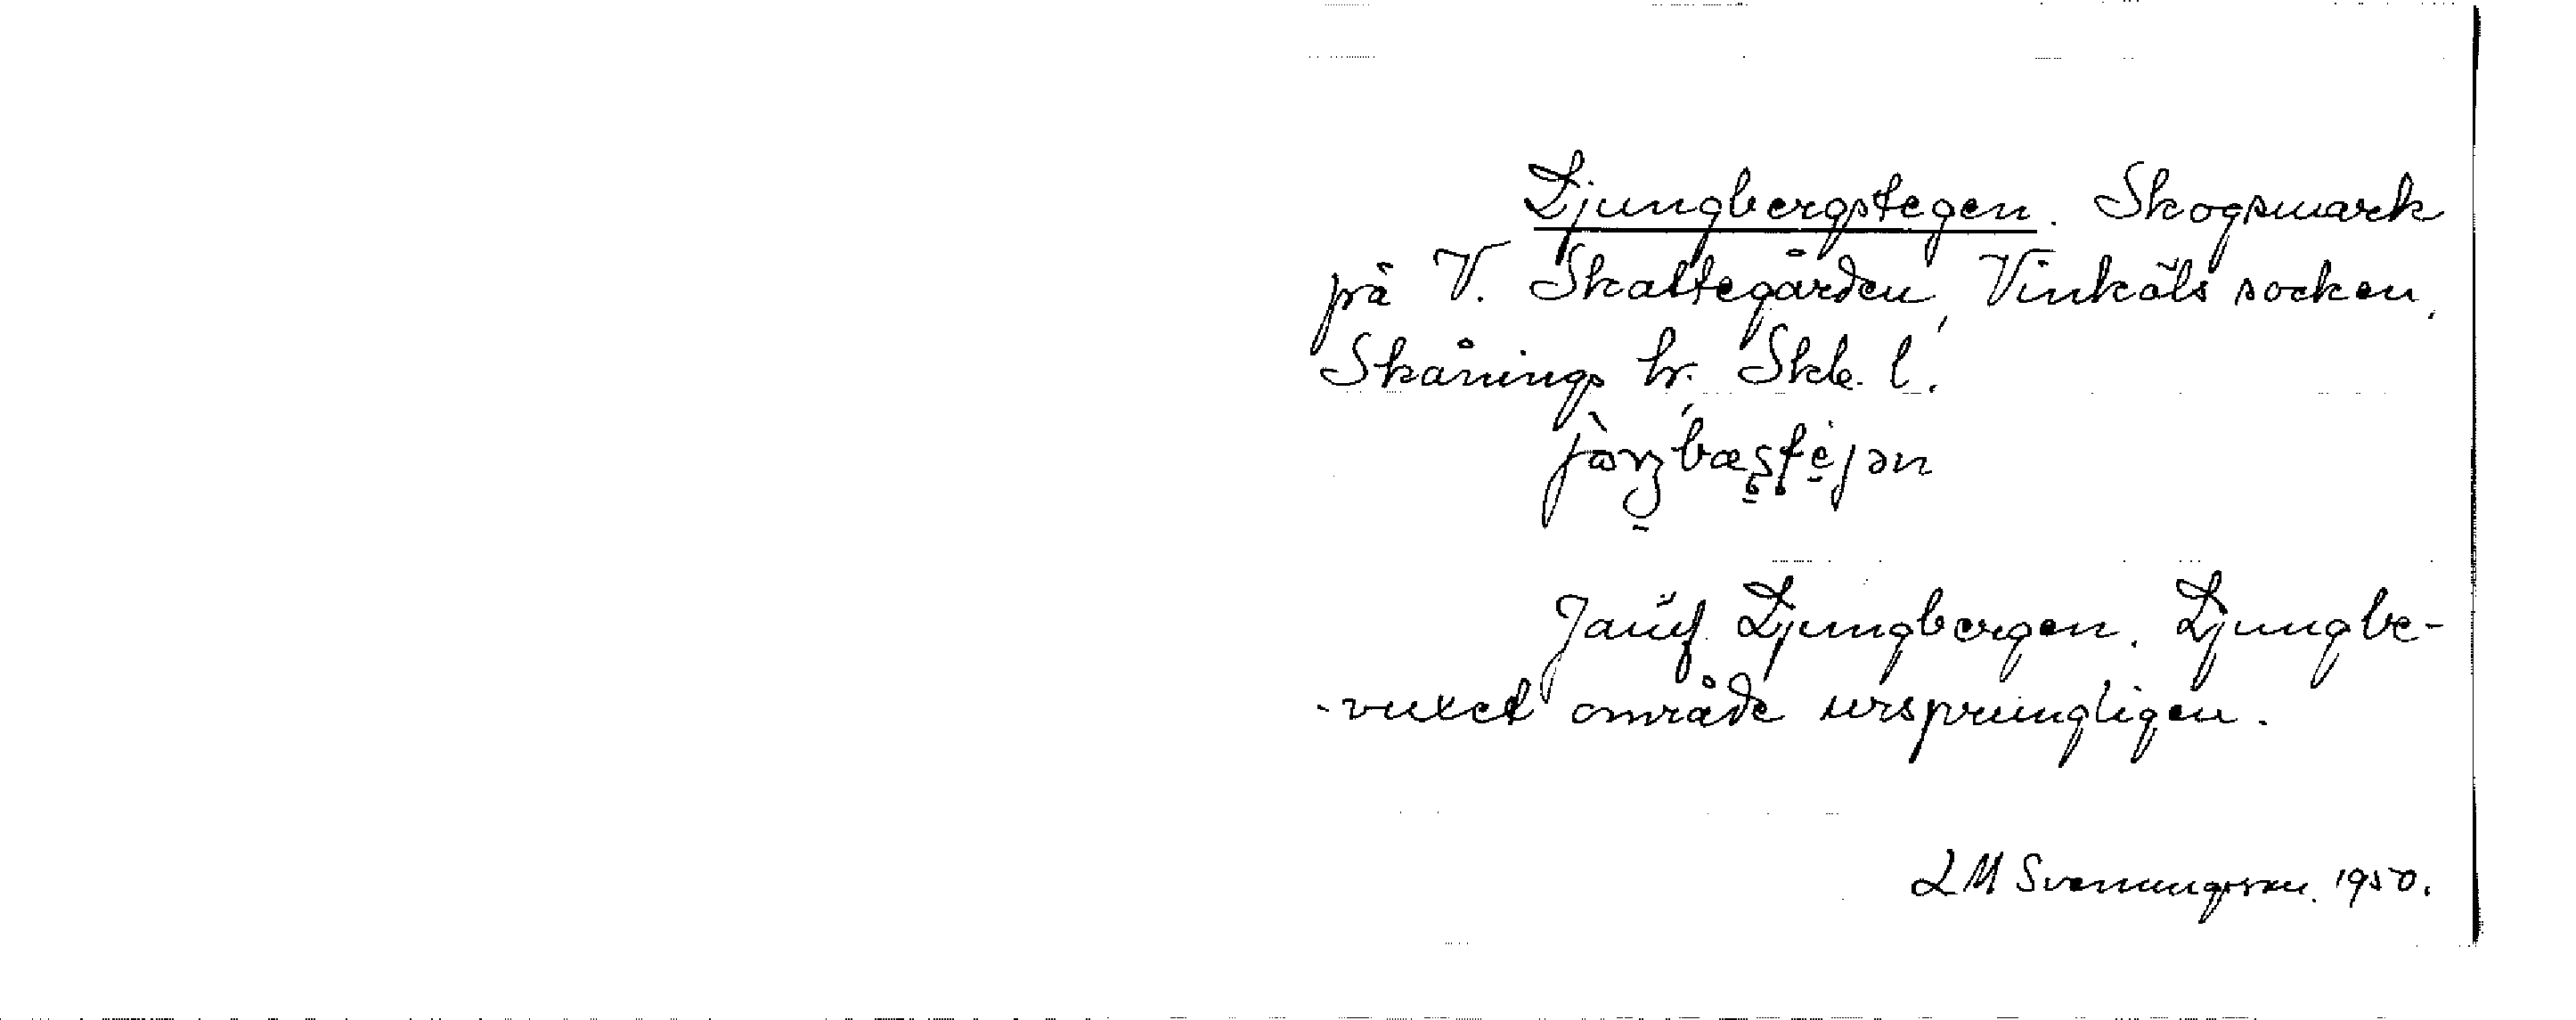 Ljungbergstegen. Skogsmark
på V. Skattegården, Vinköls socken,
Skånings hr. Skb. l.
Jämf. Ljungbergen. Ljungbe-
-vuxet område ursprungligen.
LM Svenungsson. 1950.